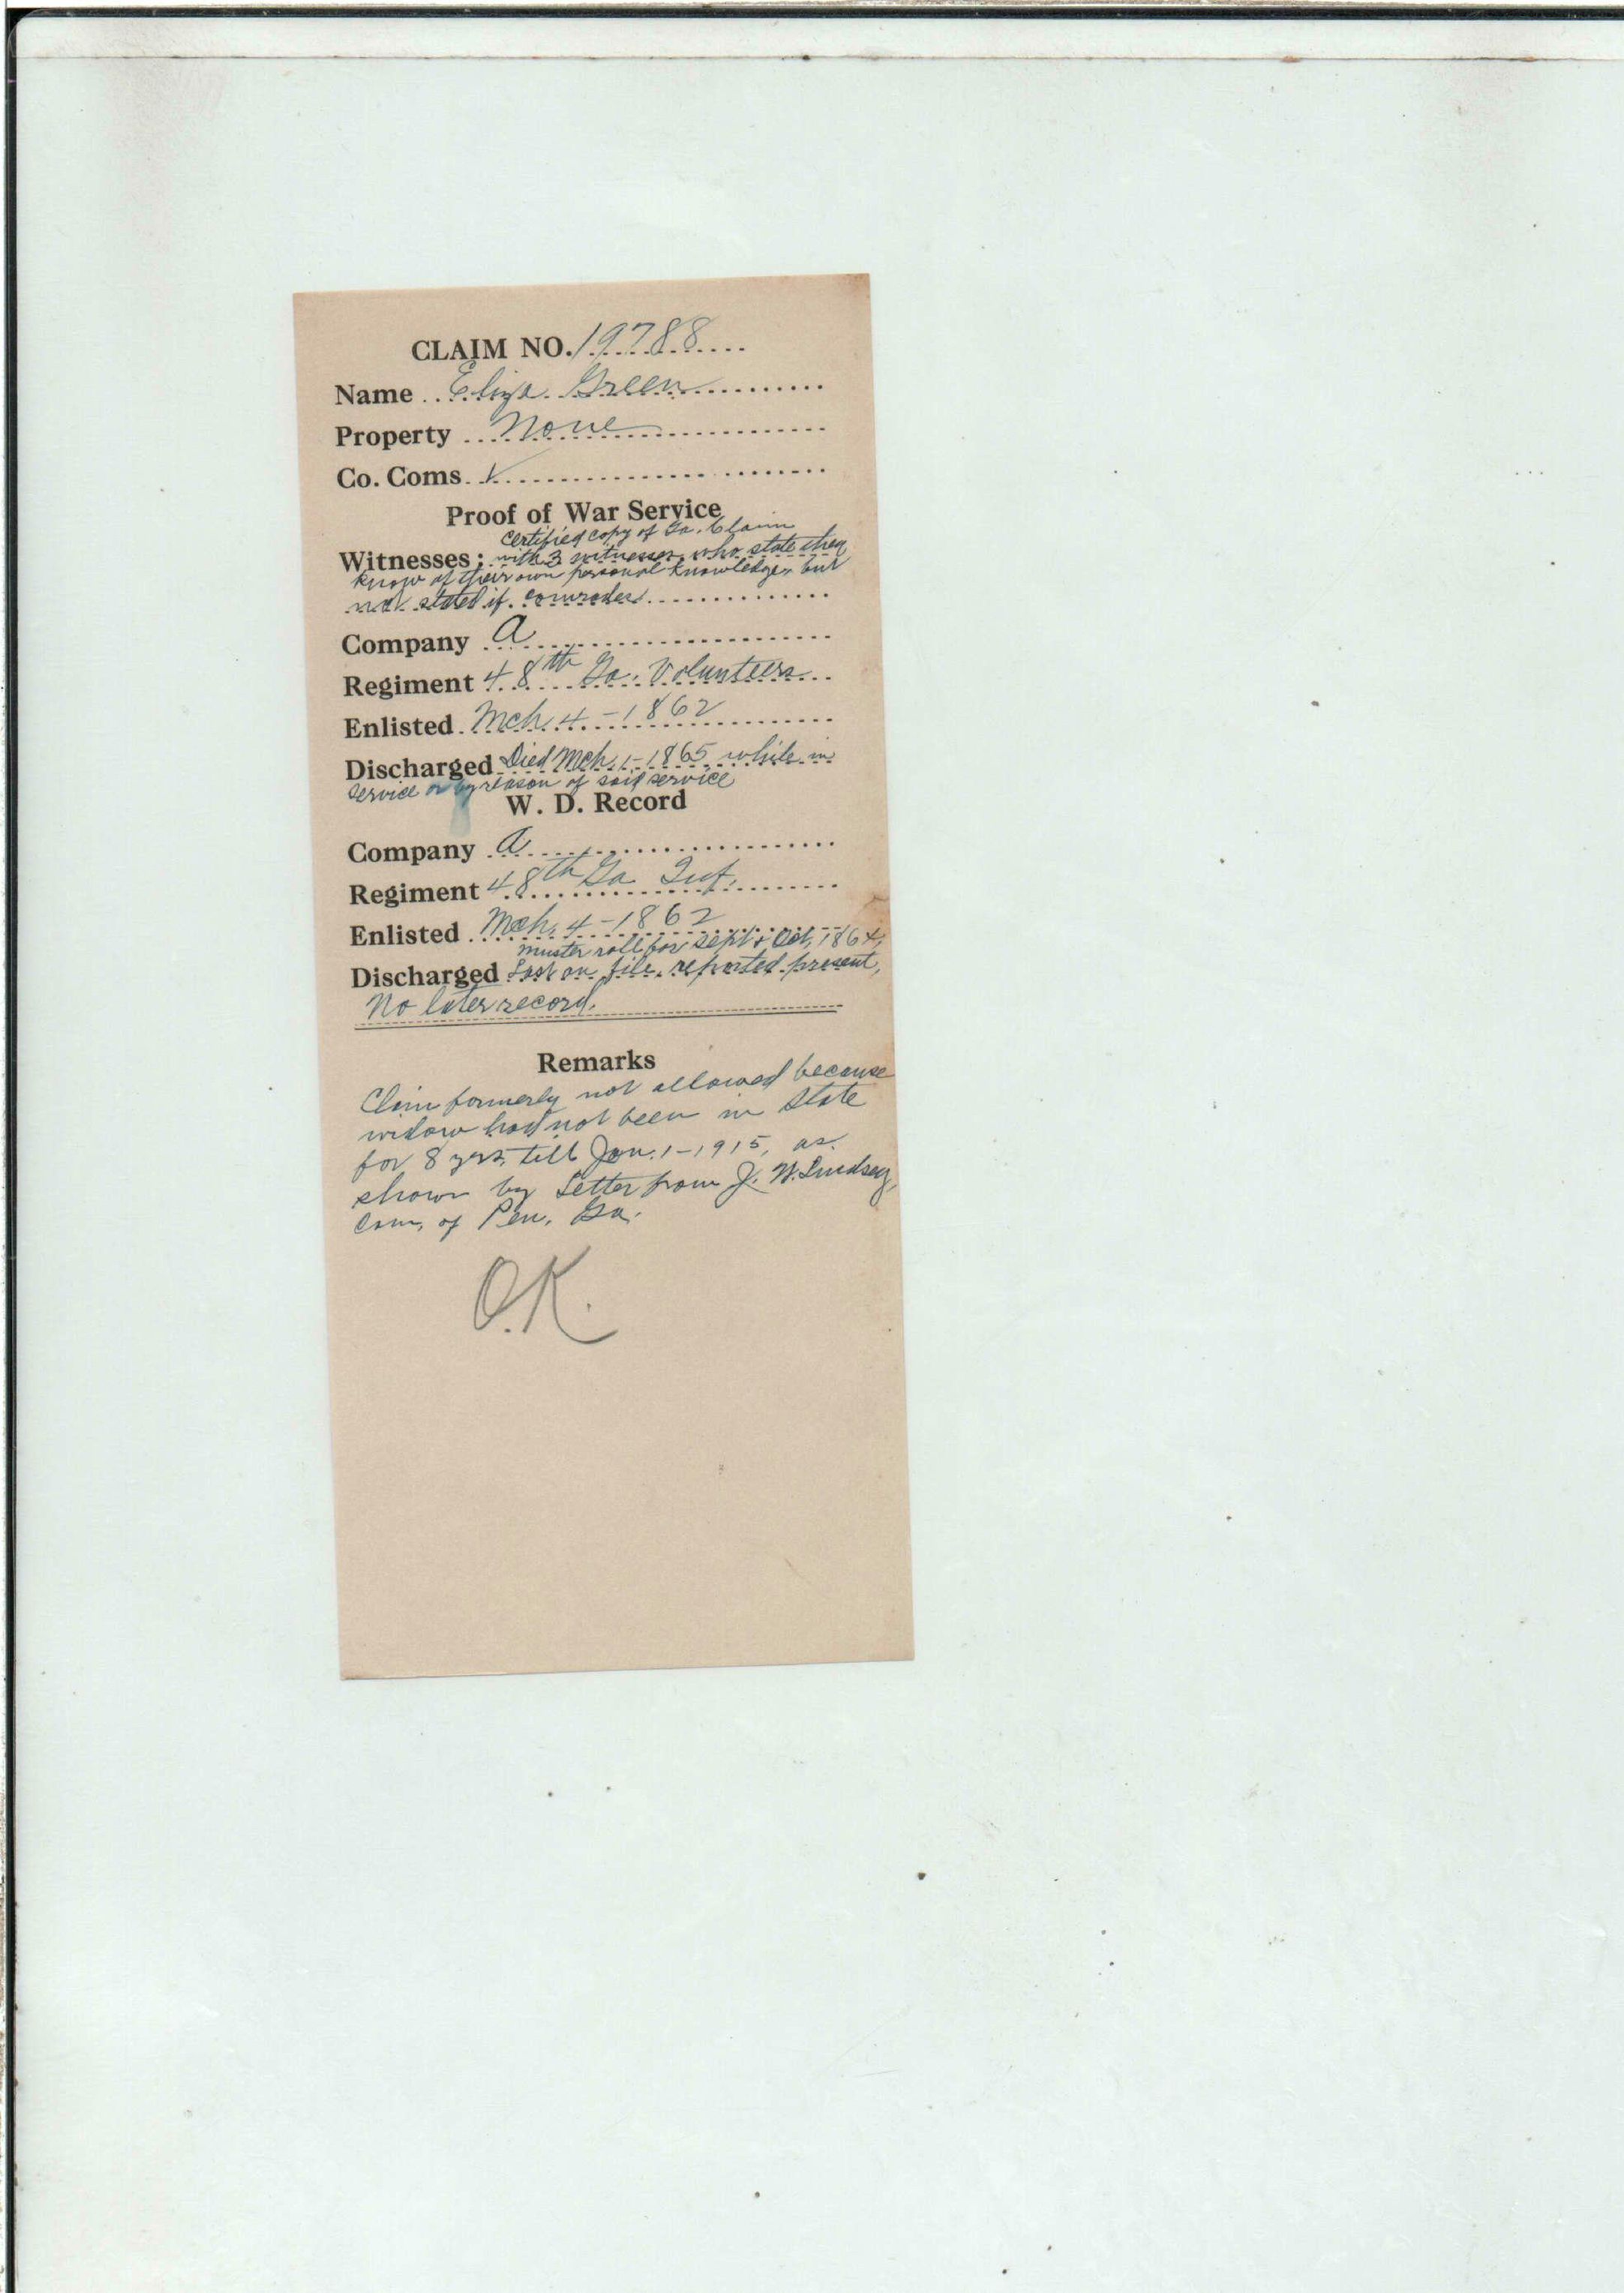 CLAIM NO. 19788
Name Eliza Green
Property None
Co. Coms. ✓
Proof of War Service
Certified copy of Ga. Claim
Witnesses: with 3 witnesses who state they
know of their own personal knowledge, but
not stated if comrades
Company A
Regiment 48th Ga. Volunteers
Enlisted Mch. 4-1862
Discharged Died Mch. 1-1865 while in
service or by reason of said service
W. D. Record
Company A
Regiment 48th Ga Inf.
Enlisted Mch. 4-1862
muster roll for Sept & Oct, 1864,
Discharged Last on file, reported present,
No later record.
Remarks
Claim formerly not allowed because
widow had not been in State
for 8 yrs, till Jan. 1-1915, as
shown by Letter from J. W. Lindsey,
Com. of Pen. Ga.
O.K.